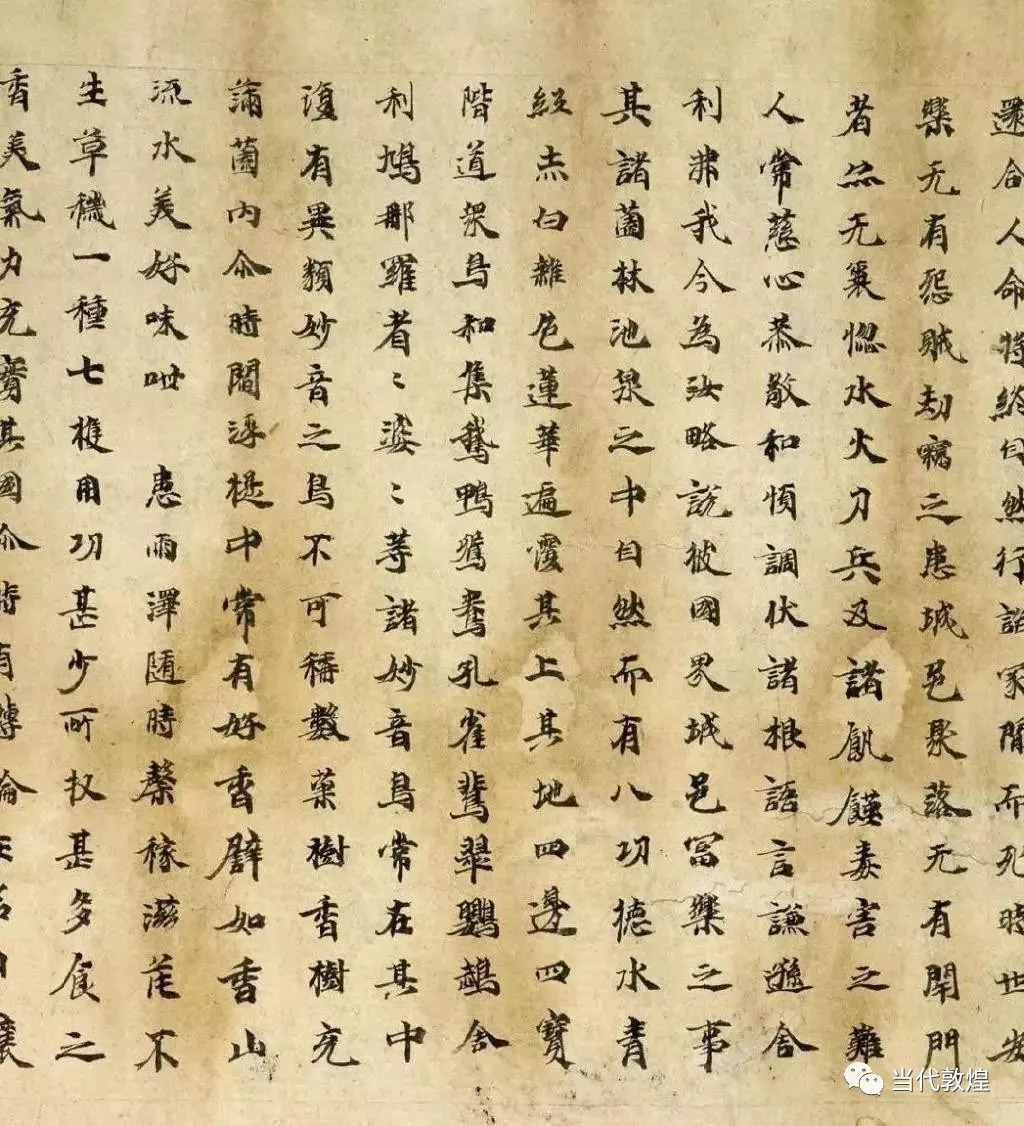 還合人命將終自然行詣冢間而死時世安
樂无有怨賊劫竊之患城邑聚落无有閉門
者亦无衰惱水火刀兵及諸飢饉毒害之難
人常慈心恭敬和順調伏諸根語言謙遜舍
利弗我今為汝略說彼國界城邑冨樂之事
其諸薗林池泉之中自然而有八功德水青
紅赤白雜色蓮華遍覆其上其地四邊四寶
階道衆鳥和集鵝鴨鴛鴦孔雀翡翠鸚鵡舍
利鳩那羅耆〻婆〻等諸妙音鳥常在其中
復有異類妙音之鳥不可稱數菓樹香樹充
滿薗內尒時閻浮提中常有好香譬如香山
流水美好味甘 患雨澤随時糓稼滋茂不
生草穢一種七穫用功甚少所収甚多食之
香美氣力充實其國尒時有轉輪王名曰
当代敦煌